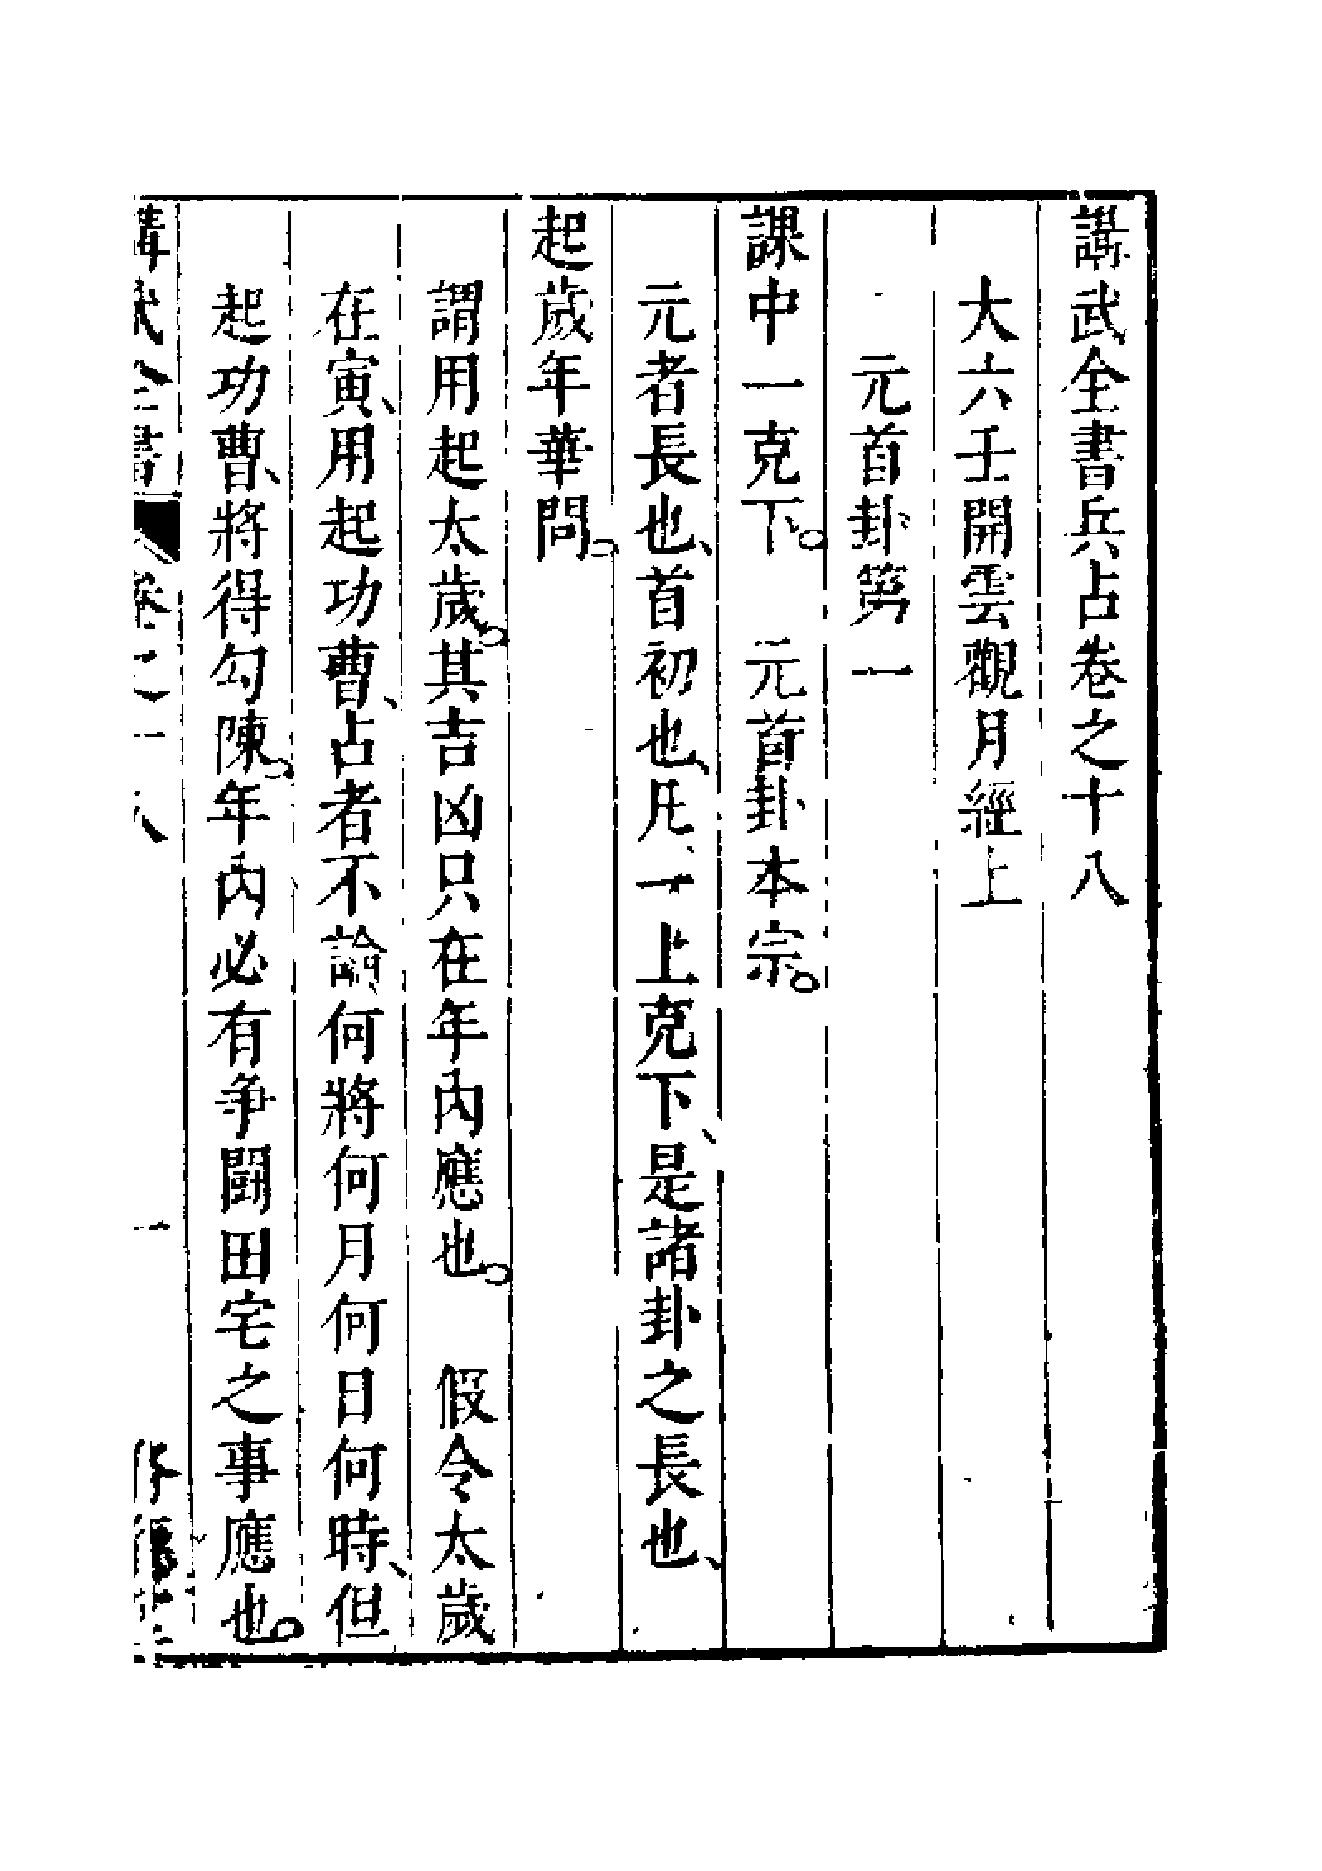 講武全書兵占卷之十八
大六壬開雲觀月經上
元首卦第一
課中一克下。　元首卦本宗。
元者長也、首初也、凡一上克下、是諸卦之長也、
起歲年華問。
謂用起太歲。其吉凶只在年內應也。　假令太歲
在寅、用起功曹、占者不論何將何月何日何時、但
起功曹、將得勾陳。年內必有爭鬪田宅之事應也。
講武全書　卷之十八　一